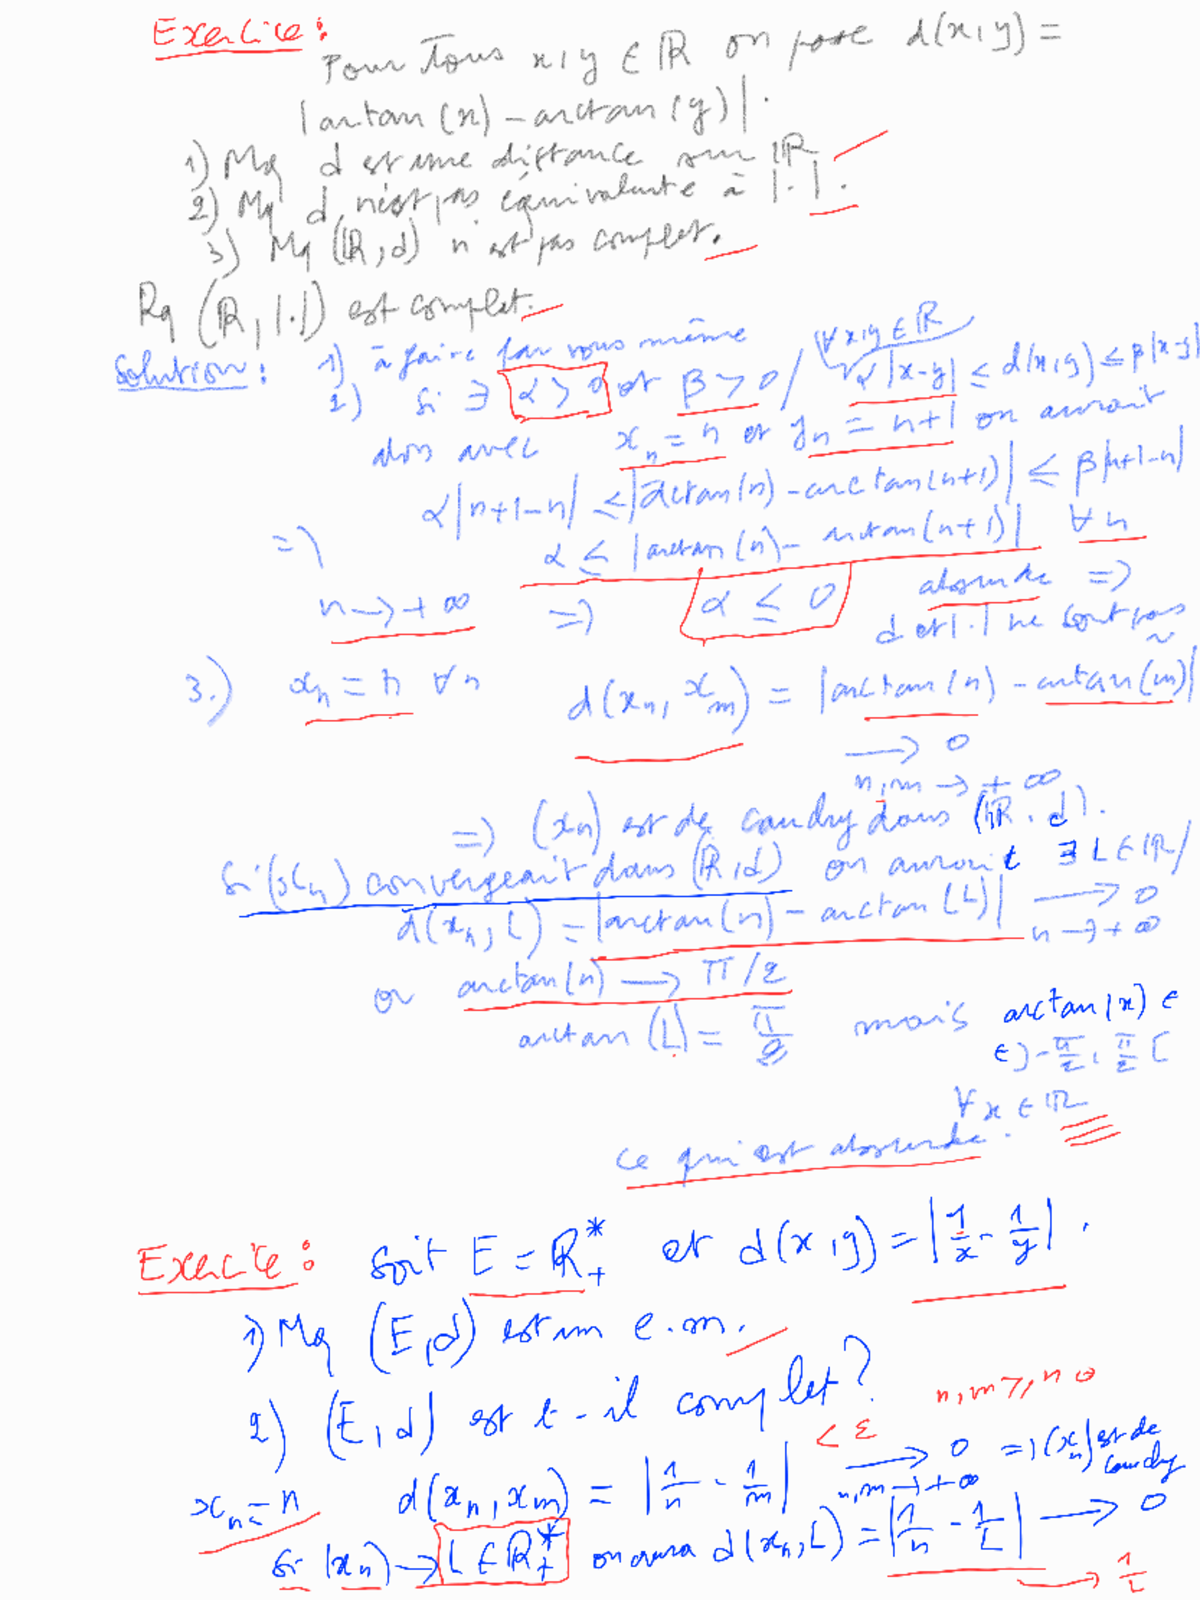 Exercice :
Pour Tous x, y ∈ ℝ on pose d(x,y) =
|artan(x) - arctan(y)|.
1) Mq d est une distance sur ℝ
2) Mq d n'est pas équivalente à |.|.
3) Mq (ℝ, d) n'est pas complet.
Rq (ℝ, |.|) est complet.
Solution : 1) à faire par vous même
2) Si ∃ α > 0 et β > 0 / ∀ x,y ∈ ℝ α|x-y| ≤ d(x,y) ≤ β|x-y|
alors avec x_n = n et y_n = n+1 on aurait
α|n+1-n| ≤ |arctan(n) - arctan(n+1)| ≤ β|n+1-n|
=> α ≤ |arctan(n) - arctan(n+1)| ∀ n
n → +∞ => α ≤ 0 absurde =>
d et |.| ne sont pas ~
3.) x_n = n ∀ n d(x_n, x_m) = |arctan(n) - arctan(m)|
→ 0
n,m → +∞
=> (x_n) est de cauchy dans (ℝ, d).
Si (x_n) convergeait dans (ℝ, d) on aurait ∃ L ∈ ℝ /
d(x_n, L) = |arctan(n) - arctan(L)| → 0
n → +∞
or arctan(n) → π/2
arctan(L) = π/2 mais arctan(x) ∈
∈ ]-π/2, π/2[
∀ x ∈ ℝ
ce qui est absurde.
Exercice : Soit E = ℝ*₊ et d(x,y) = |1/x - 1/y|.
1) Mq (E, d) est un e.m.
2) (E, d) est t-il complet ?
n,m ≥ n₀
x_n = n d(x_n, x_m) = |1/n - 1/m| < ε → 0 => (x_n) est de cauchy
n,m → +∞
Si (x_n) → L ∈ ℝ*₊ on aura d(x_n, L) = |1/n - 1/L| → 0
→ 1/L